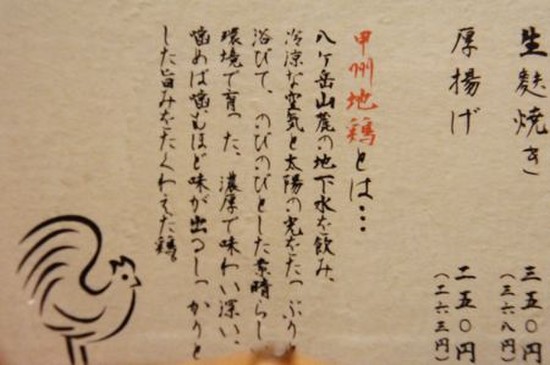 生麩焼き 三五〇円
(三六八円)
厚揚げ 二五〇円
(二六三円)
甲州地鶏とは…
八ヶ岳山麓の地下水を飲み、
冷涼な空気と太陽の光をたっぷりと
浴びて、のびのびとした素晴らし
環境で育った、濃厚で味わい深い、
噛めば噛むほど味が出るしっかりと
した旨みをたくわえた鶏